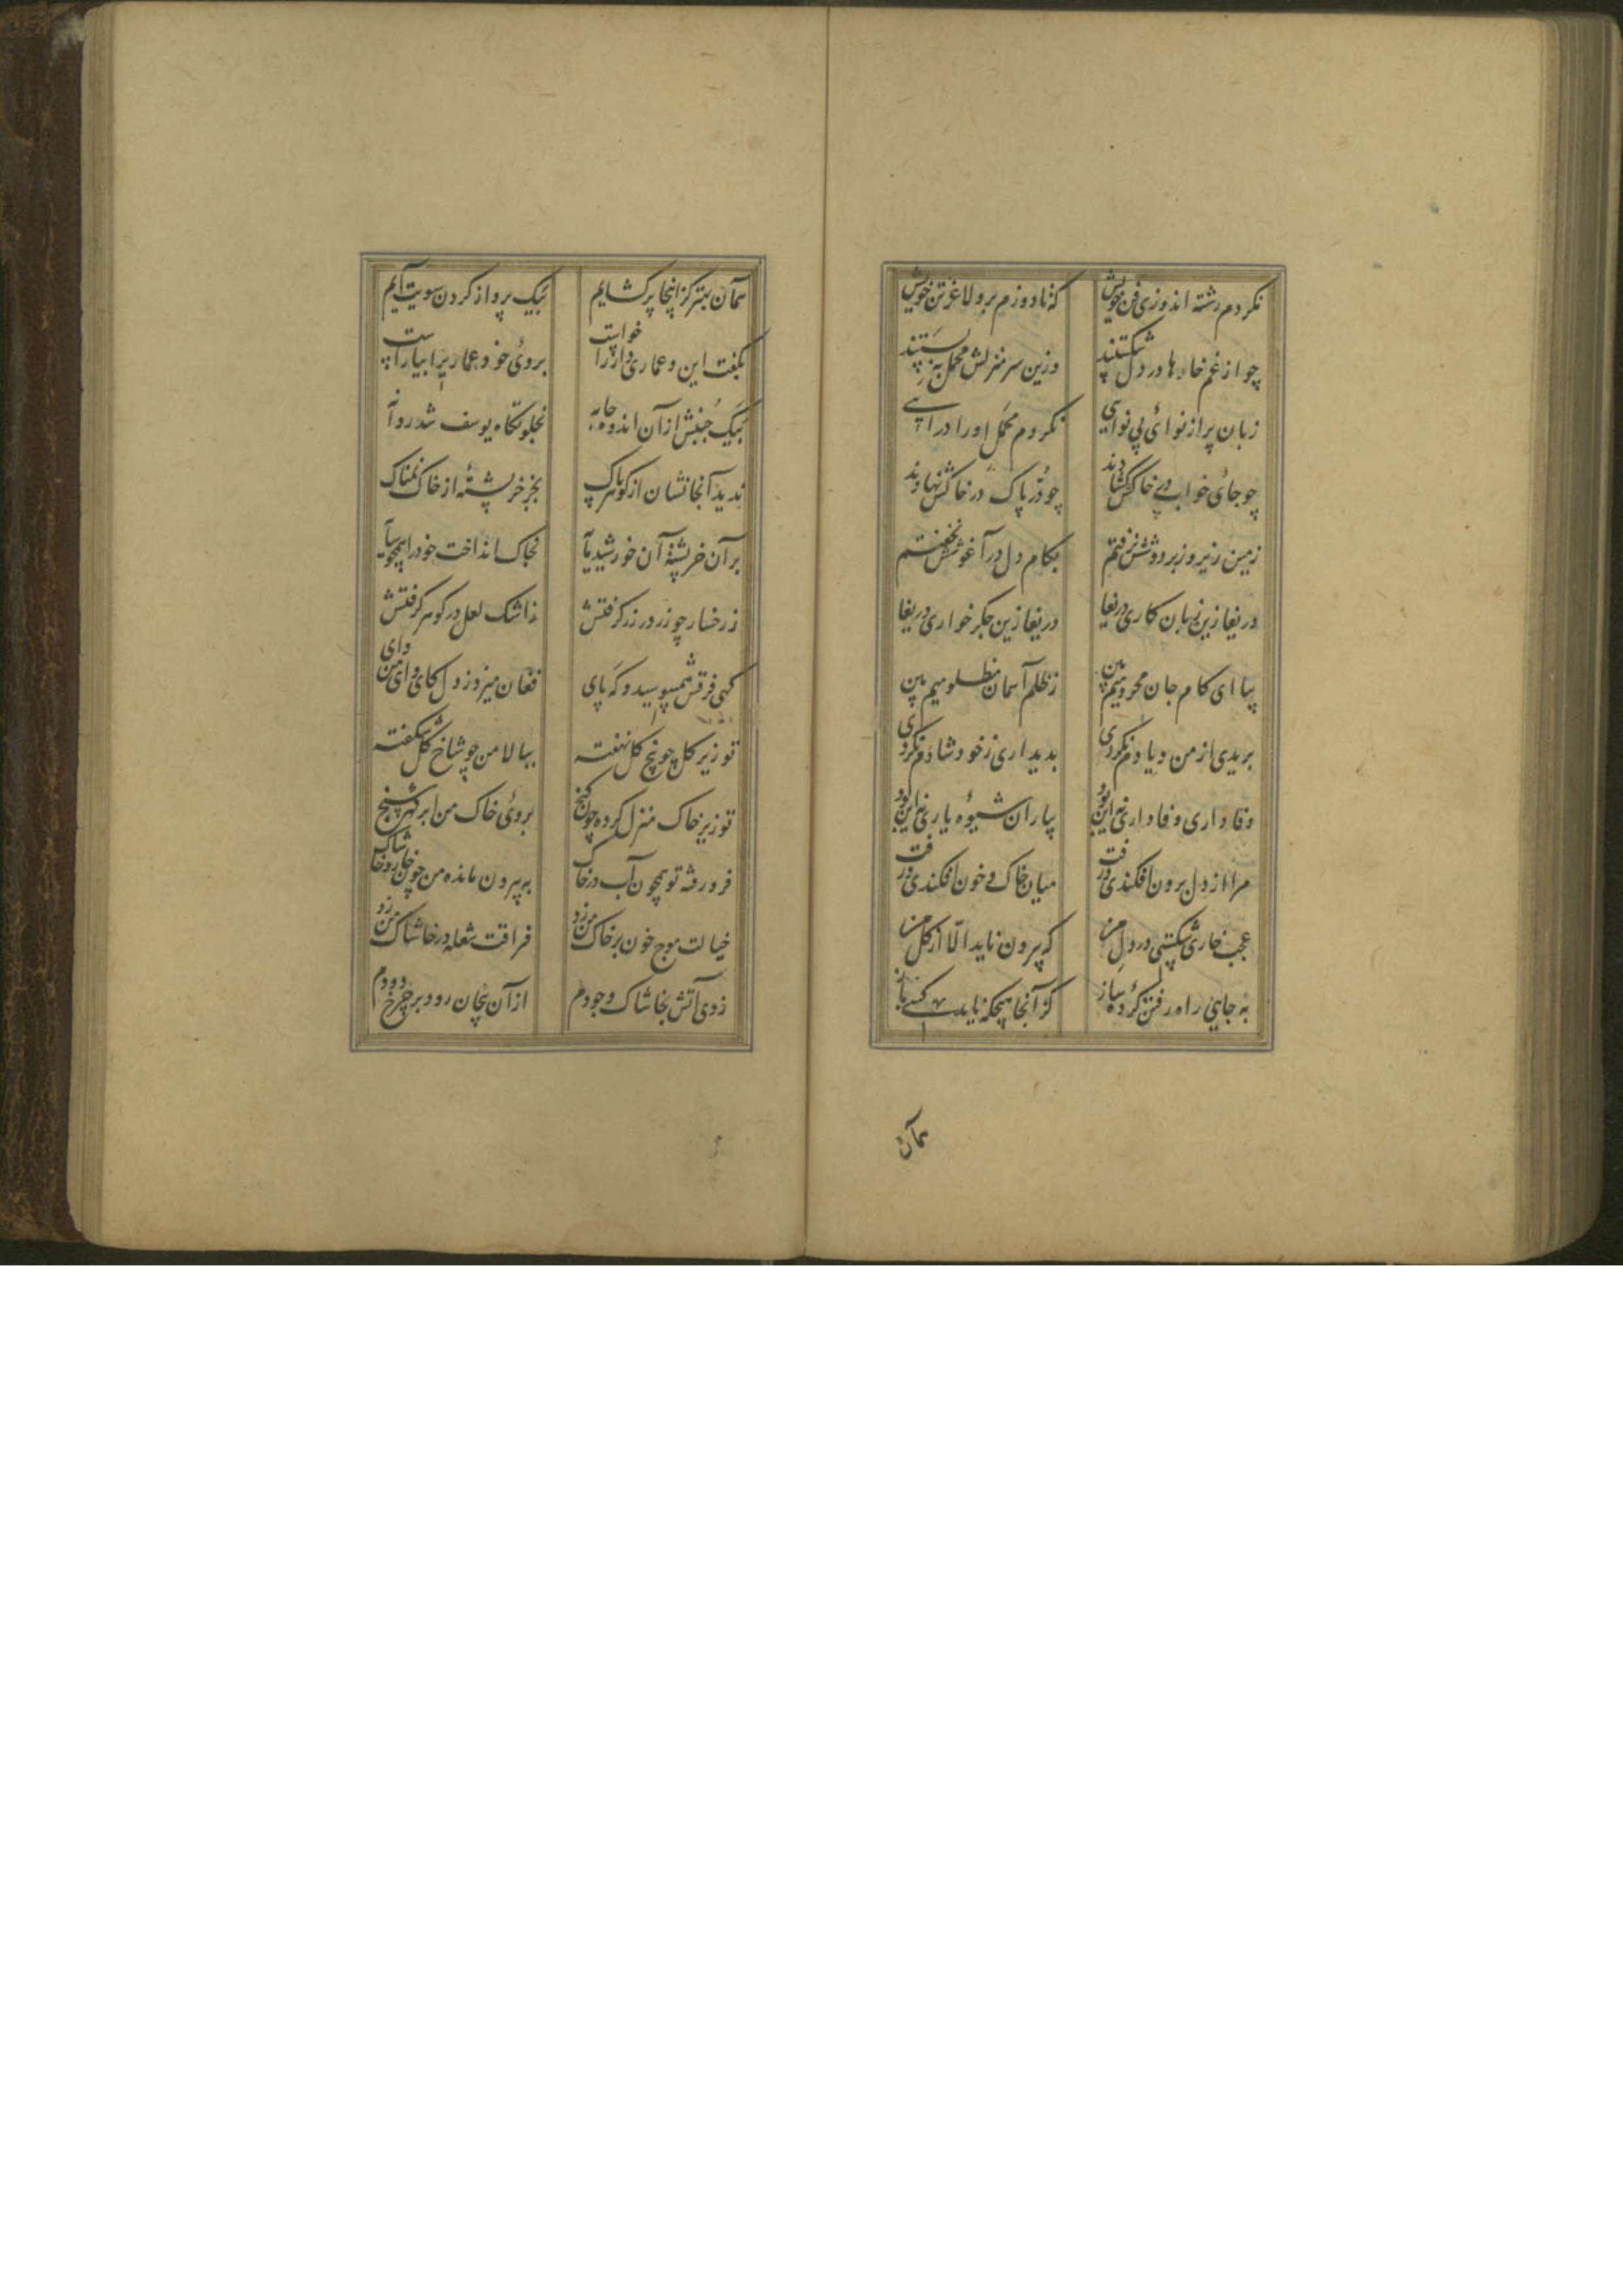 نکردم رشته اندوزی فن خویش که تا دوزم برو لاغر تن خویش
چو از غم خارها در دل شکستند وزین سر منزلش محمل به بستند
زبان پر از نوائی بی نوایی نکردم محمل او را درایی
چو جائی خواب در خاکش گشادند چو در پاک در خاکش نهادند
زمین زیر و زبر دوشش نرفتم بکام دل در آغوشش نخفتم
دریغا زین زیان کاری دریغا دریغا زین جگر خواری دریغا
بیا ای کام جان محرومیم بین ز ظلم آسمان مظلومیم بین
بریدی از من و یادم نکردی بدیداری ز خود شادم نکردی
وفا داری وفا داری نه این بود بیاران شیوهٔ یاری نه این بود
مرا از دل برون افکندی و رفت میان خاک و خون افکندی و رفت
عجب خاری شکستی در دل من که بیرون ناید الّا از گل من
به جایی راه رفتن کردهٔ ساز کز آنجا هیچکه ناید کسی باز
همان
همان بهتر کز اینجا پر کشایم بیک پرواز کردن سویت آیم
بکفت این و عماری دار را خواست بروئی خود عماری را بیاراست
بیک جنبش از آن اندوه خانه بخلوتکاه یوسف شد روانه
ندید آنجا نشان از کوهر پاک بجز خر پشتهٔ از خاک نمناک
بر آن خر پشتهٔ آن خورشید پایه بخاک انداخت خود را همچو سایه
ز رخسار چو زر در زر کرفتش ز اشک لعل در کوهر کرفتش
کهی فرقش همیبوسید و که پای فغان میزد ز دل کای وای من وای
تو زیر کل چو بیخ کل نهفته ببالا من چو شاخ کل شکفته
تو زیر خاک منزل کرده چون کنج بروئی خاک من ابر کهر سنج
فرو رفته تو همچون آب در خاک به بیرون مانده من چون خار و خاشاک
خیالت موج خون بر خاک من زد فراقت شعله در خاشاک من زد
زدی آتش بخاشاک وجودم از آن پیچان رود بر چرخ دودم